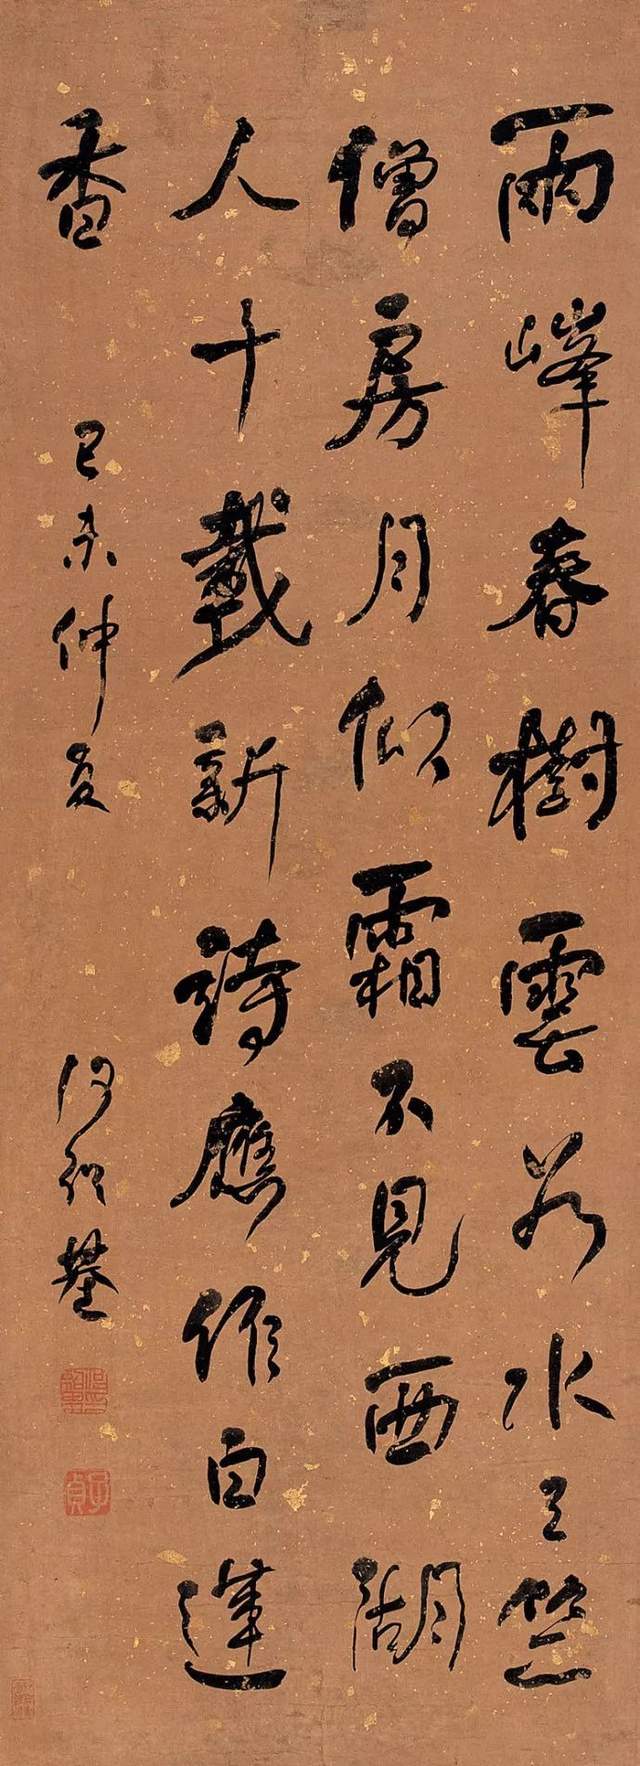 兩峰春樹雲若水三竺
僧房月似霜不見西湖
人十載新詩應作白蓮
香 己未仲夏 何紹基
何紹基印
子貞